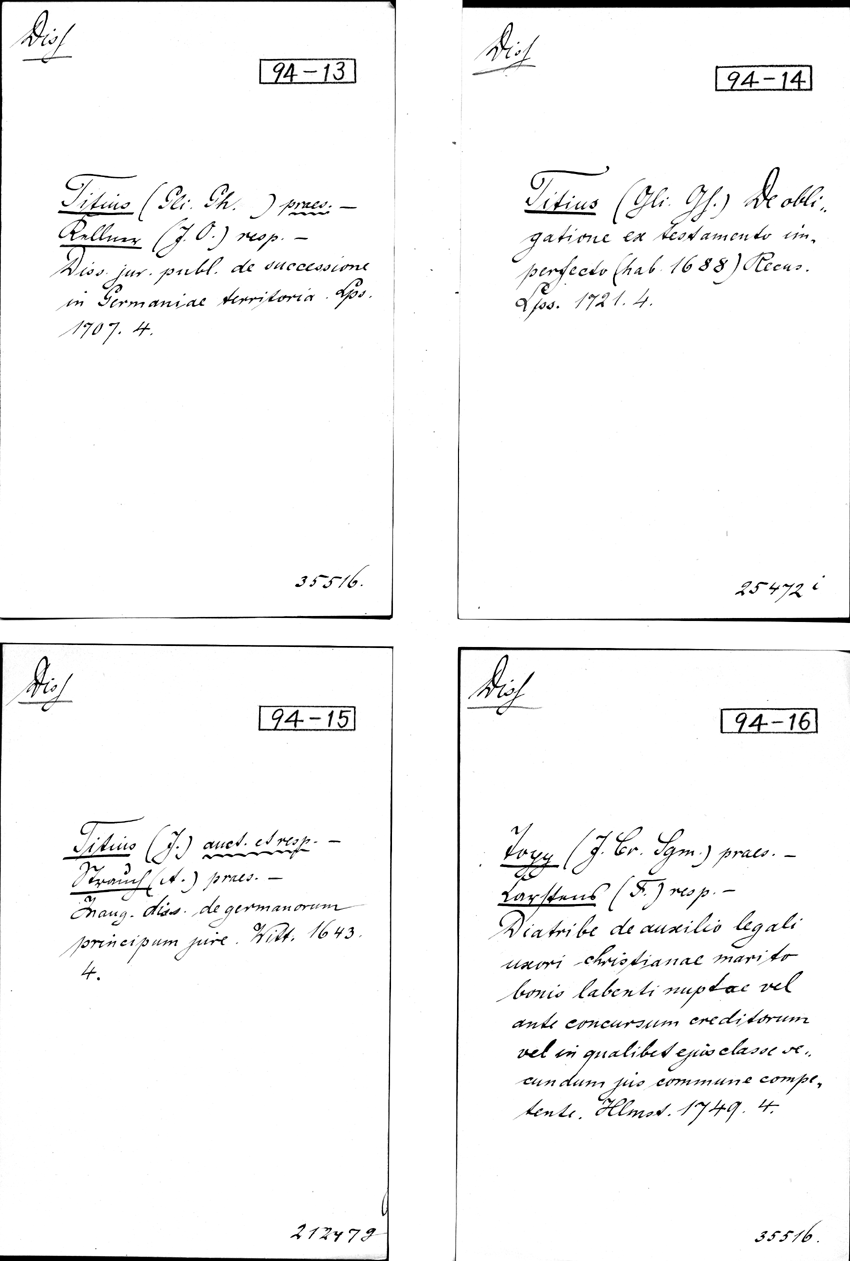 Diss
94-13
Titius (Gli. Gh. ) praes. —
Kellner (J. O.) resp. —
Diss. jur. publ. de successione
in Germaniae territoria. Lps.
1707. 4.
35516.
Diss
94-14
Titius (Gli. Gh.) De obli-
gatione ex testamento im-
perfecto (hab. 1688) Recus.
Lps. 1721. 4.
25472 i
Diss
94-15
Titius (J.) auct. et resp. —
Strauch (A.) praes. —
Inaug. diss. de germanorum
principum jure. Witt. 1643.
4.
212479
Diss
94-16
(J. Cr. Sgm.) praes. —
Carstens (F.) resp. —
Diatribe de auxilio legali
uxori christianae marito
bonis labenti nuptae vel
ante concursum creditorum
vel in qualibet ejus classe se-
cundum jus commune compe-
tente. Hlmst. 1749. 4.
35516.